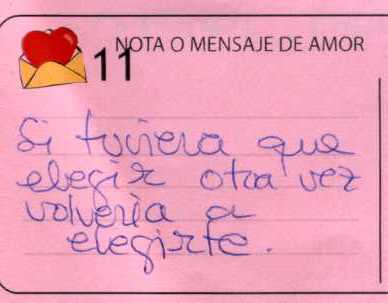 11 NOTA O MENSAJE DE AMOR
Si tuviera que
elegir otra vez
volvería a
elegirte.